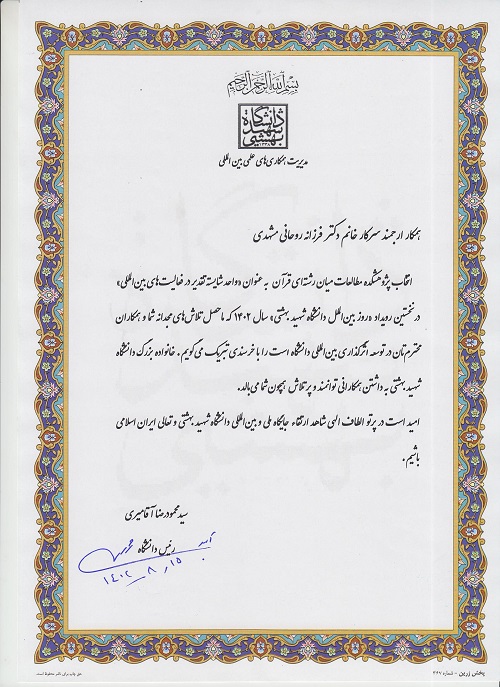 بسم الله الرحمن الرحیم
دانشگاه شهید بهشتی
۱۳۳۸
مدیریت همکاری‌های علمی بین‌المللی
همکار ارجمند سرکار خانم دکتر فرزانه روحانی مشهدی
انتخاب پژوهشکده مطالعات میان رشته‌ای قرآن به عنوان «واحد شایسته تقدیر در فعالیت‌های بین‌المللی»
در نخستین رویداد «روز بین‌الملل دانشگاه شهید بهشتی» سال ۱۴۰۲ که ماحصل تلاش‌های مجدانه شما و همکاران
محترم‌تان در توسعه اثرگذاری بین‌المللی دانشگاه است را با خرسندی تبریک می‌گویم. خانواده بزرگ دانشگاه
شهید بهشتی به داشتن همکارانی توانمند و پرتلاش همچون شما می‌بالد.
امید است در پرتو الطاف الهی شاهد ارتقاء جایگاه ملی و بین‌المللی دانشگاه شهید بهشتی و تعالی ایران اسلامی
باشیم.
سید محمودرضا آقامیری
رئیس دانشگاه
۱۴۰۲ ر ۸ ر ۱۵
پخش زرین - شماره ۳۴۷
حق چاپ برای ناشر محفوظ است.